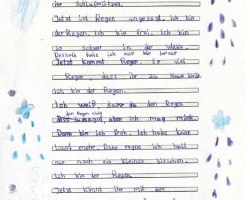 ihr Schlafmützen.
Jetzt ist Regen angesagt. Ich bin
der Regen. Ich bin frei. Ich bin
so schwer in der Wolke.
Deshalb falle ich nur bin
Jetzt kommt Regen. So viel
Regen, dass ihr zu Hause
Ich bin der Regen.
Ich weiß, dass du den Regen
den Regen nicht
magst, aber ich mag mich.
Dann bin ich froh. Ich habe keine
Lust mehr. Dann regne ich halt
nur noch ein kleines bisschen.
Ich bin der Regen.
Jetzt könnt ihr mit dem